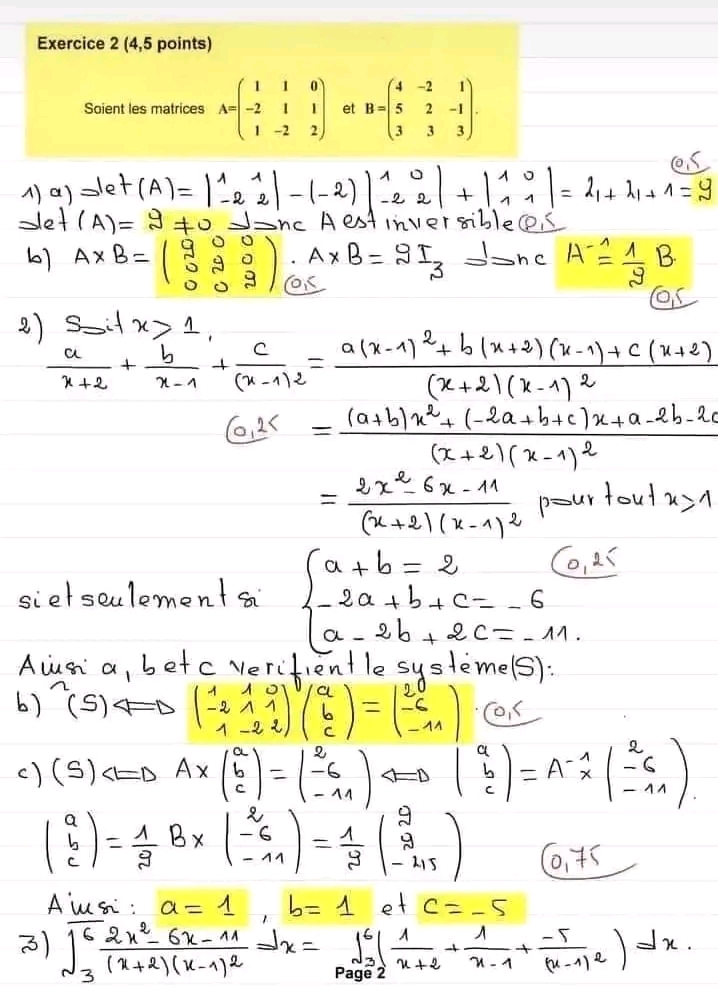 Exercice 2 (4,5 points)
Soient les matrices A=(1 1 0; -2 1 1; 1 -2 2) et B=(4 -2 1; 5 2 -1; 3 3 3).
0,5
1) a) det(A)= |1 1; -2 2| - (-2) |1 0; -2 2| + |1 0; 1 1| = 4 + 4 + 1 = 9
det(A)= 9 ≠ 0 donc A est inversible 0,5
b) A×B = (9 0 0; 0 9 0; 0 0 9). A×B = 9I₃ donc A⁻¹ = 1/9 B.
0,5 0,5
2) Soit x > 1,
a/(x+2) + b/(x-1) + c/(x-1)² = (a(x-1)² + b(x+2)(x-1) + c(x+2))/((x+2)(x-1)²)
0,25 = ((a+b)x² + (-2a+b+c)x + a-2b-2c)/((x+2)(x-1)²)
= (2x²-6x-11)/((x+2)(x-1)²) pour tout x>1
si et seulement si {a+b = 2; -2a+b+c = -6; a-2b+2c = -11. 0,25
Ainsi a, b et c vérifient le système (S):
b) (S) ⟺ (1 1 0; -2 1 1; 1 -2 2)(a; b; c) = (2; -6; -11). 0,5
c) (S) ⟺ A×(a; b; c) = (2; -6; -11) ⟺ (a; b; c) = A⁻¹×(2; -6; -11).
(a; b; c) = 1/9 B×(2; -6; -11) = 1/9 (9; 9; -45) 0,75
Ainsi : a = 1, b = 1 et c = -5
3) ∫₃⁶ (2x²-6x-11)/((x+2)(x-1)²) dx = ∫₃⁶ (1/(x+2) + 1/(x-1) + -5/(x-1)²) dx.
Page 2